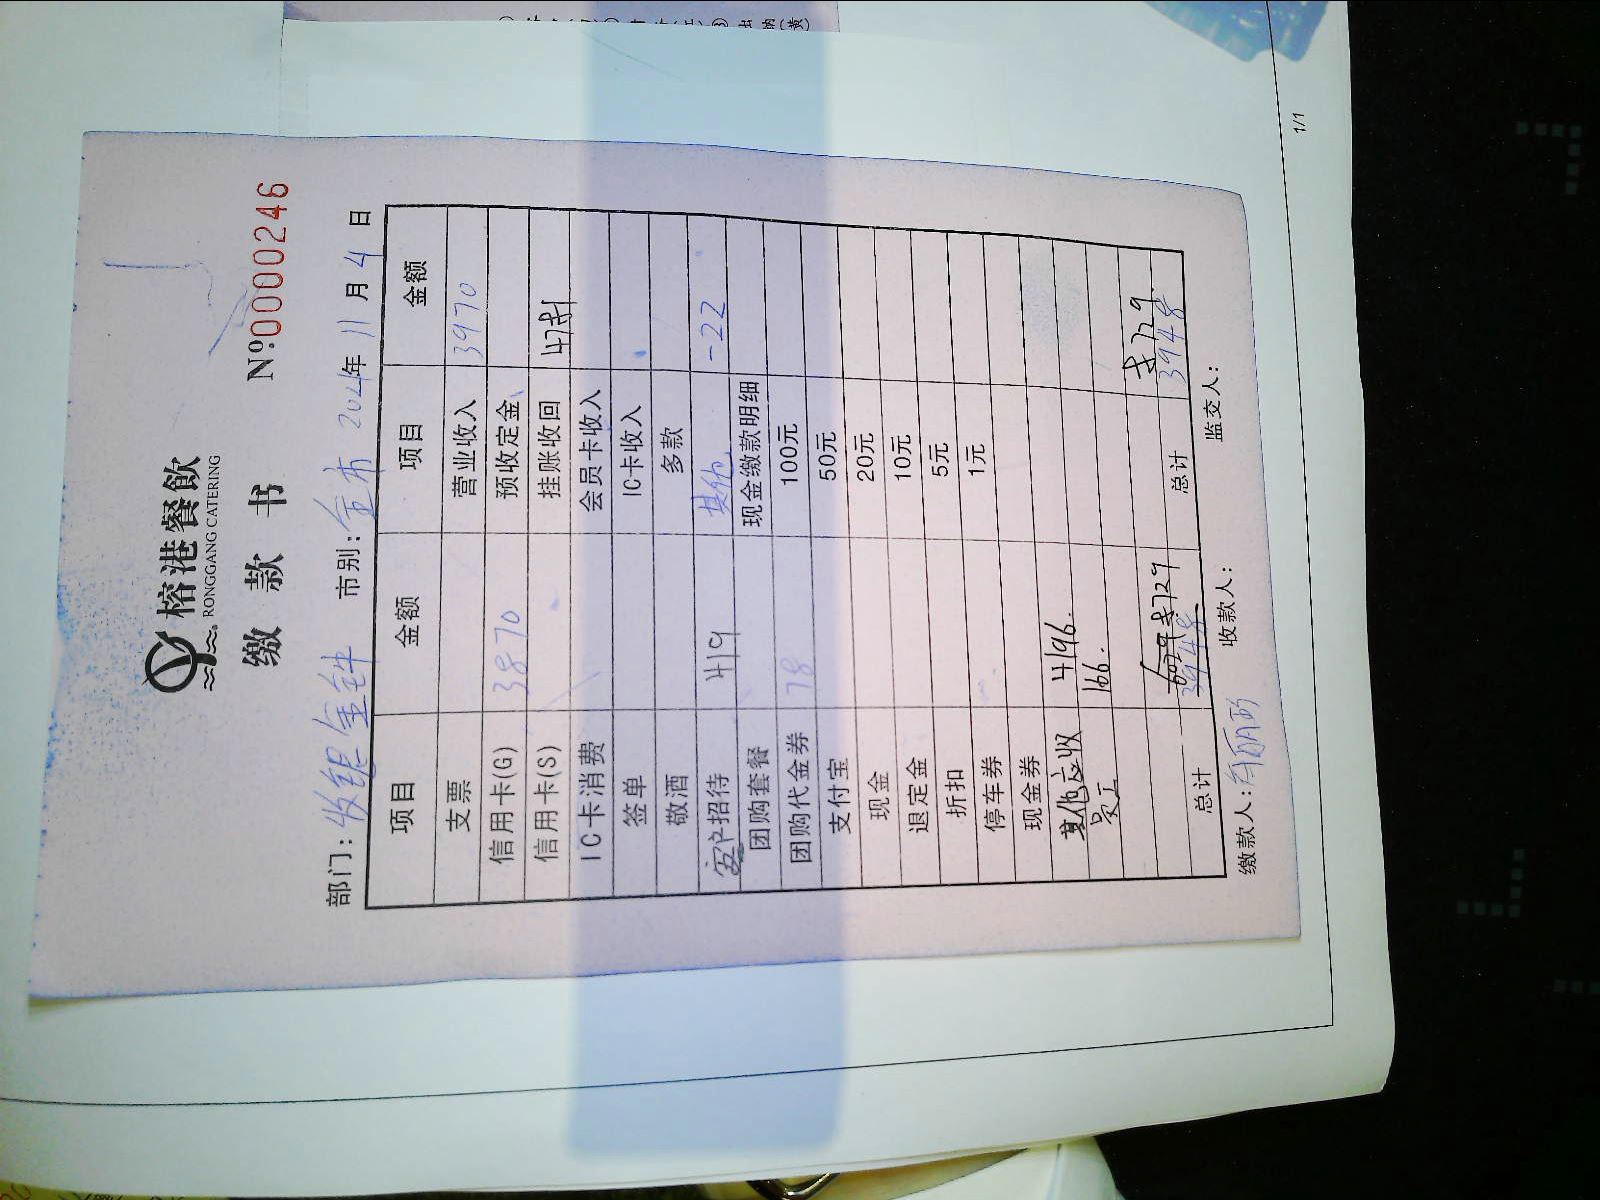 榕港餐飲
RONGGANG CATERING
缴款书 Nº:0000246
部门: 收银 市别: 全市 2021年11月4日
项目 金额 项目 金额
支票 营业收入 3970
信用卡(G) 3870 预收定金
信用卡(S) 挂账收回
IC卡消费 会员卡收入
签单 IC卡收入
敬酒 多款
招待 419 其他 -22
团购套餐 现金缴款明细
团购代金券 78 100元
支付宝 50元
现金 20元
退定金 10元
折扣 5元
停车券 1元
现金券
其他应收 4196.
员工 166.
总计 3948 总计 3948
缴款人: 收款人: 监交人:
1/1